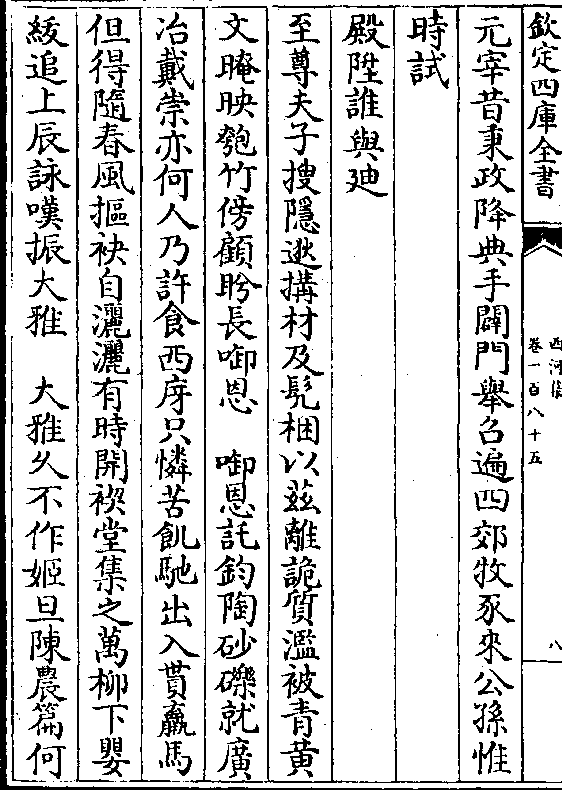 欽定四庫全書
西河集
卷一百八十五
八
元宰昔秉政降典手闢門舉召遍四郊牧豕來公孫惟
時試
殿陛誰與廸
至尊夫子搜隱逖搆材及髠梱以茲離詭質濫被青黄
文晻映匏竹傍顧盼長啣恩　啣恩託鈞陶砂礫就廣
冶戴崇亦何人乃許食西序只憐苦飢馳出入貰羸馬
但得隨春風摳袂自灑灑有時開禊堂集之萬柳下嬰
緌追上辰詠嘆振大雅　大雅久不作姬旦陳農篇何